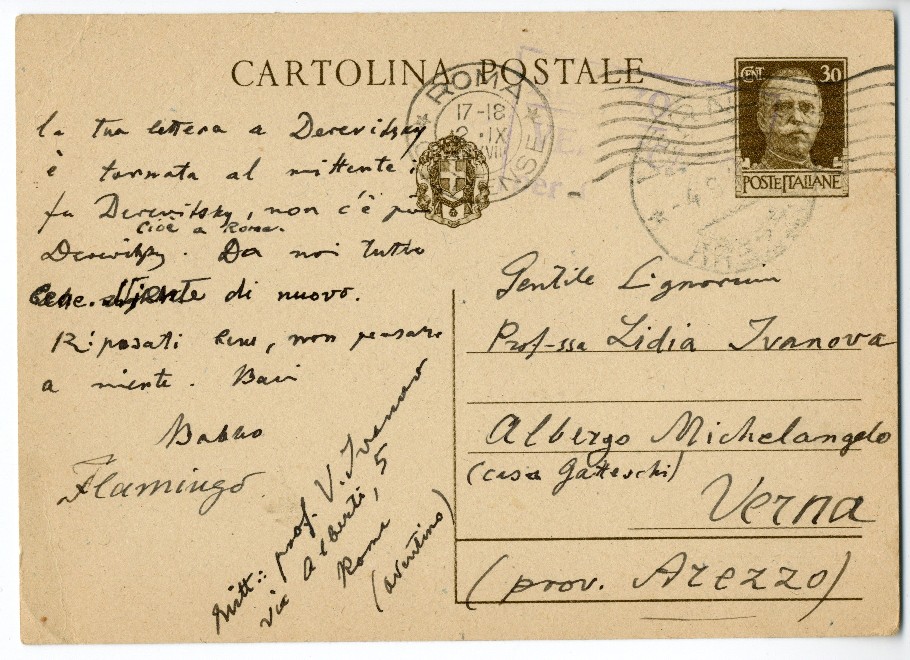 CARTOLINA POSTALE
ROMA
17-18
IX
CENT. 30
POSTE ITALIANE
la tua lettera a Derevitsky
è tornata al mittente:
fu Derevitsky, non c'è più
cioè a Roma.
Derevitsky. Da noi tutto
di nuovo.
Riposati bene, non pensare
a niente. Baci
Babbo
Flamingo
Mitt.: prof. V. Ivanov
via Alberti, 5
Roma
(Aventino)
Gentile Signorina
Prof-ssa Lidia Ivanova
Albergo Michelangelo
(casa Gatteschi)
Verna
(prov. Arezzo)